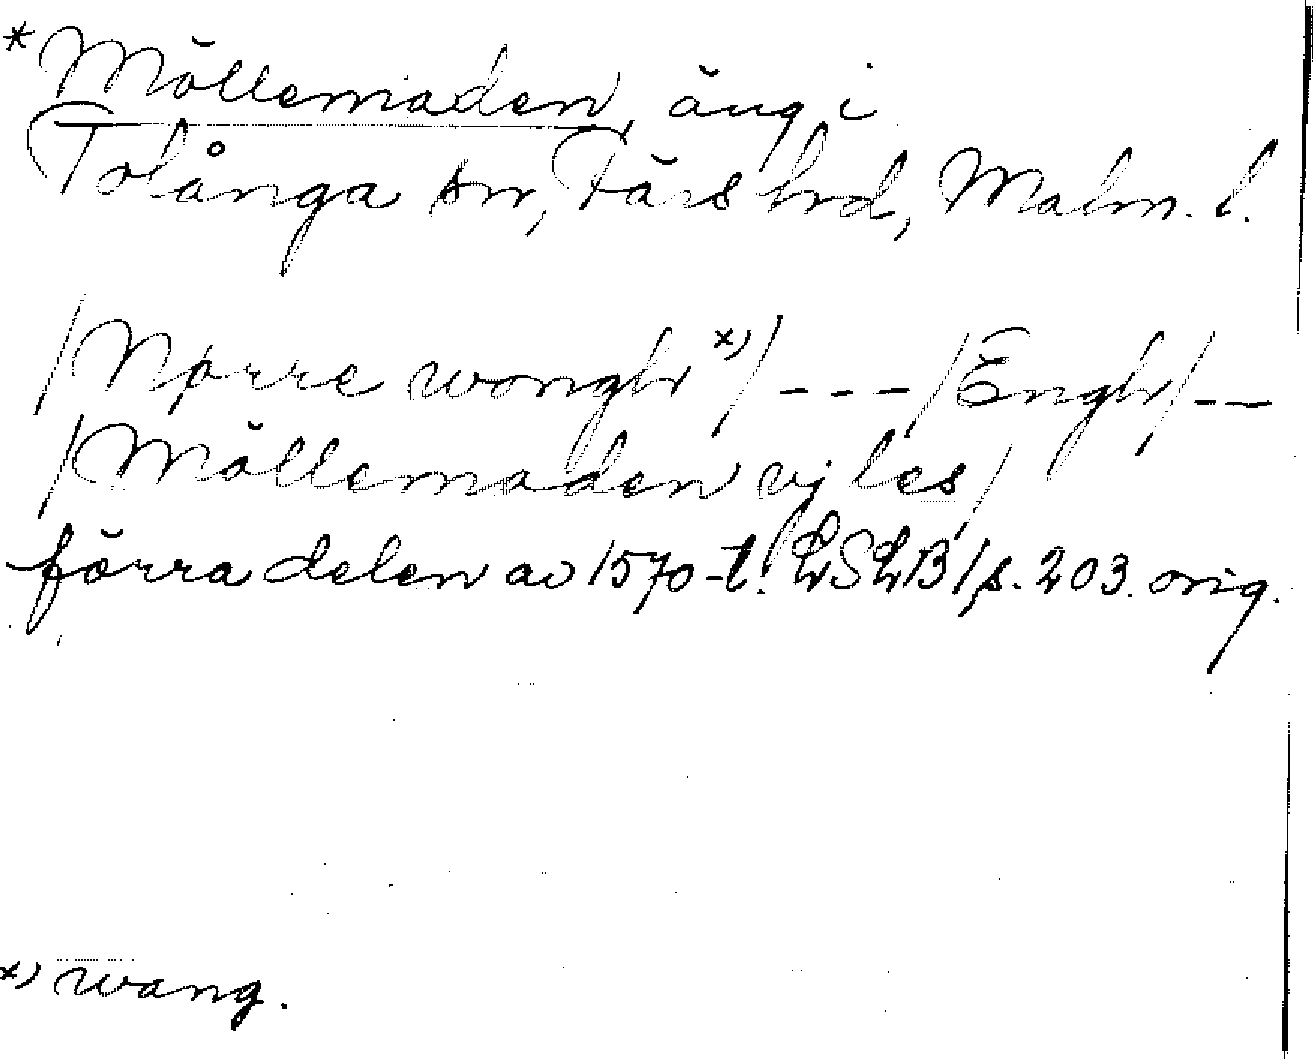 *Möllemaden, äng i
Tolånga sn, Färs hd, Malm. l.
/Nørre wongh x)/ - - - /Engh/ - -
/Möllemaden vj les/
förra delen av 1570-t. LSLB 1, s. 203. orig.
x) wang.